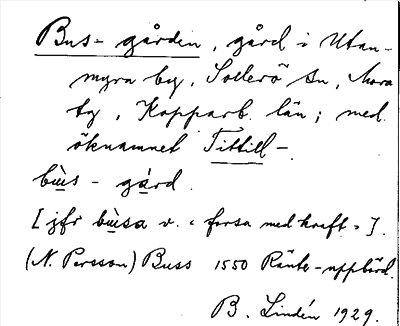 Bus-gården, gård i Utan-
myra by, Sollerö sn, Mora
tg, Kopparb. län; med
öknamnet Tittill-
bùs-gárd.
[jfr bùsa v. "forsa med kraft"].
(N. Persson) Buss 1550 Ränte-uppbörd.
B. Lindén 1929.